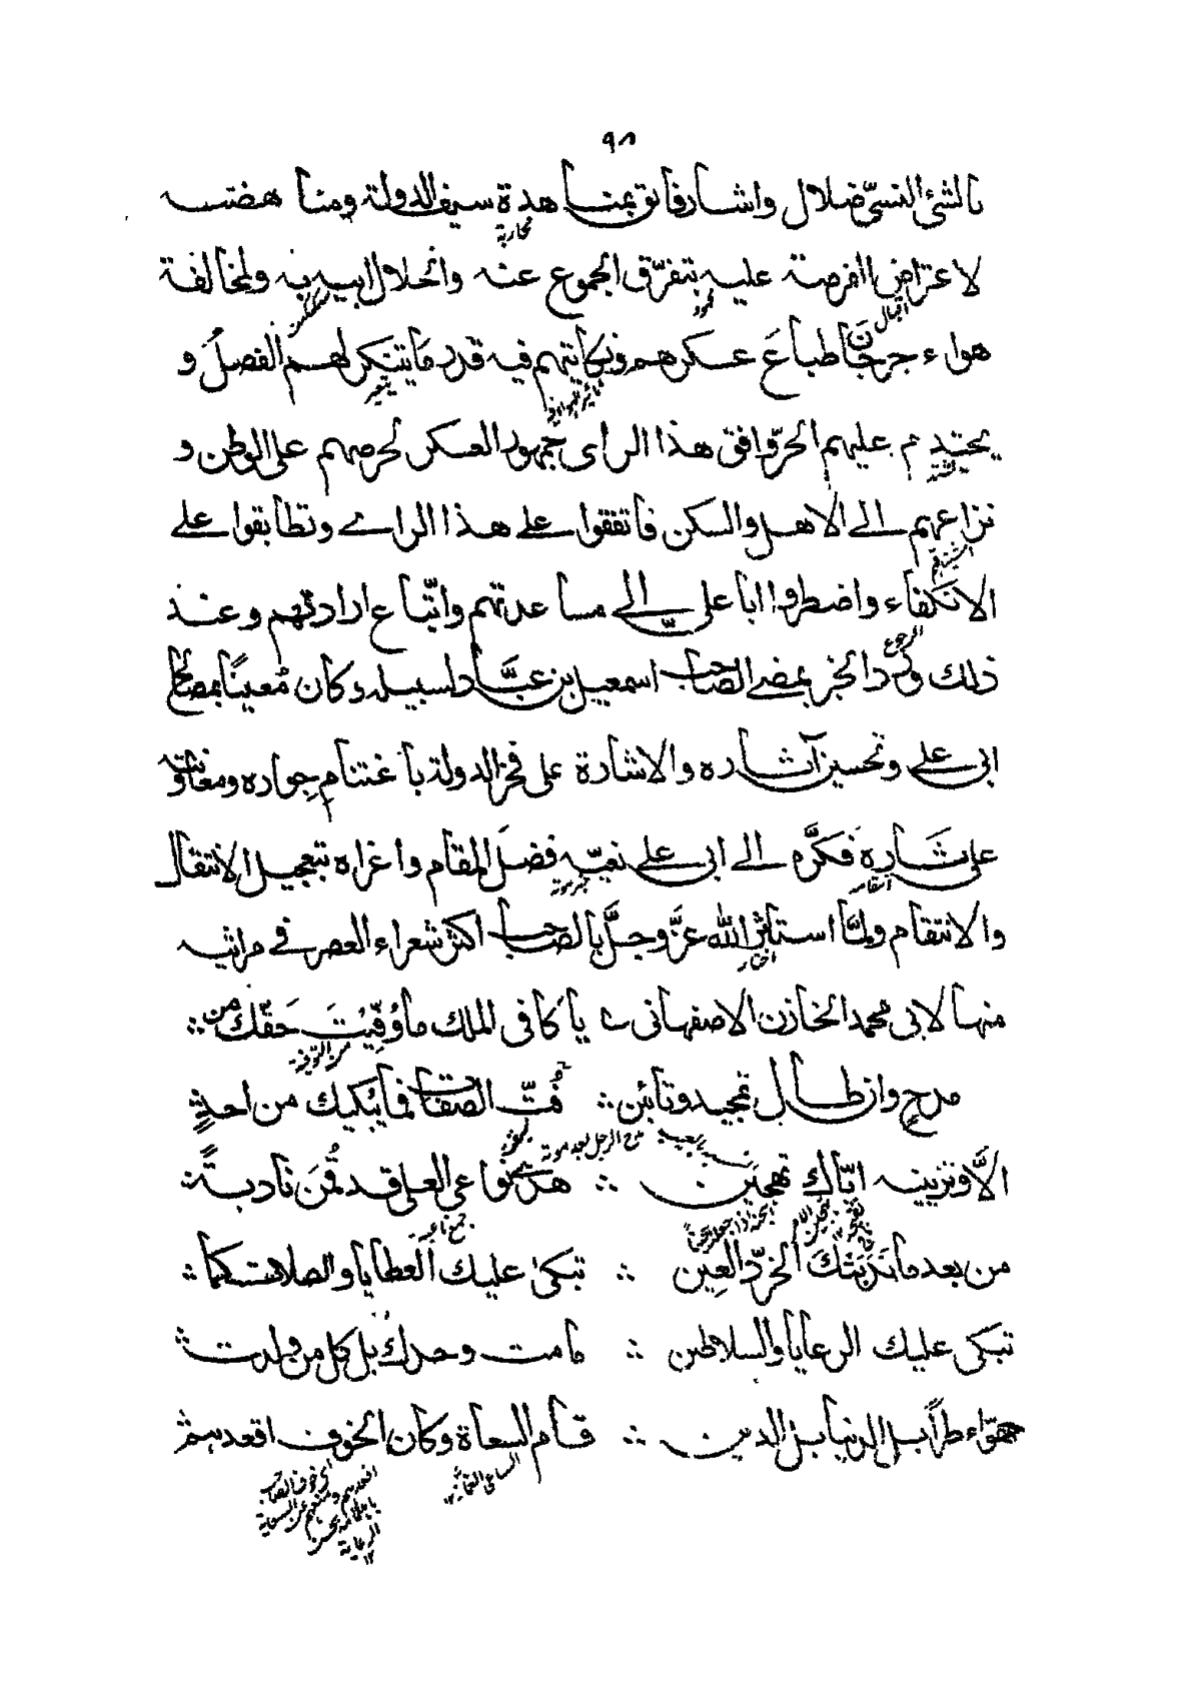 ٩٨
بالشئ النسئ ضلال واشار فائق بمناهدة سيف الدولة ومناهضته
محاربة
لاعتراض الفرصة عليه بتفرق الجموع عنه وانحلال ابيه به ولمخالفة
اقبال محمود سبكتكين
هواء جرجان طباع عسكرهم ونكايتهم فيه قدر ما يتنكر لهم الفصل و
يتغير
يحتدم عليهم الحرّ وافق هذا الراى جمهور العسكر لحرصهم على الوطن و
يشتد
نزاعهم الى الاهل والسكن فاتفقوا على هذا الراے وتطابقوا على
الانكفاء واضطروا ابا علىّ الى مساعدتهم واتّباع ارادتهم وعند
الرجوع
ذلك ورد الخبر بمضى الصاحب اسمعيل بن عبَّاد لسبيله وكان مُعينًا بمصالح
ابى على وتحسين آثاره والاشارة على فخر الدولة باغتنام جواره ومعاونته
على ثَاره فكَرَّه الى ابى على نعيّه فضلَ المقام واغراه بتعجيل الانتقال
خبر موته
والانتقام ولمّا استاثر الله عزّ وجلّ بالصاحب اكثر شعراء العصر فى مراثيه
اختار
منها لابى محمد الخازن الاصفهانى يا كافى الملك ما وُفِّيْتَ حَقّك من ∴
من التوفية
مدحٍ وان طال تمجيد وتابين ∴ فُتّ الصفات فما يُبكيك من احدٍ
مدح الرجل بعد موته
الاَّ وتزيينه ايّاك تهجين ∴ هذى نواعى العلى قد قُمنَ نادبةً ∴
جمع ناعية
من بعد ما نَدَبَتْكَ الخرّد العِين ∴ تبكى عليك العطايا والصلات كما ∴
تبكى عليك الرعايا والسلاطين ∴ ما مت وحدك بل كل من ولدت ∴
حوّاء طرّاً بل الدنيا بل الدين ∴ قام السعاة وكان الخوف اقعدهم
الساعى الغماز ١٢